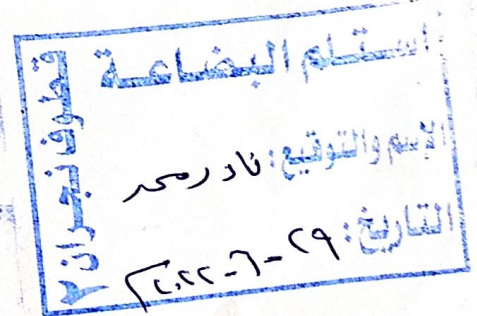 استلم البضاعة
الإسم والتوقيع: نادر محمد
التاريخ: ٢٩-٦-٢٠٢٢
قطوف نجران ٢